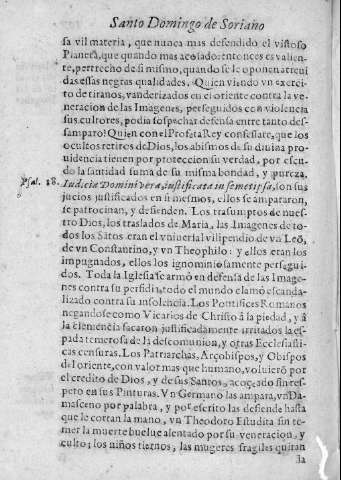 Santo Domingo de Soriano
sa vil materia, que nunca mas defendido el vistoso
Planeta, que quando mas acosado: entonces es valien-
te, pertrecho de si mismo, quando se le oponen atreui
das essas negras qualidades. Quien viendo vn exerci-
to de tiranos, vanderizados en el oriente contra la ve-
neracion de las Imagenes, perseguidos con violencia
sus cultores, podia sospechar defensa entre tanto des-
samparo! Quien con el Profeta Rey confessare, que los
ocultos retiros de Dios, los abismos de su diuina pro-
uidencia tienen por proteccion su verdad, por escu-
do la santidad suma de su misma bondad, y pureza.
Psal. 18. Iudicia Domini vera, iustificata in semetipsa, son sus
juecios justificados en si mesmos, ellos se ampararon,
se patrocinan, y defienden. Los trasumptos de nues-
tro Dios, los traslados de Maria, las Imagenes de to-
dos los Sãtos eran el vniuersal vilipendio de vn Leõ,
de vn Constantino, y vn Theophilo: y ellos eran los
impugnados, ellos los ignominiosamente persegui-
dos. Toda la Iglesia se armò en defensa de las Image-
nes contra su perfidia, todo el mundo clamò escanda-
lizado contra su insolencia. Los Pontifices Romanos
negandose como Vicarios de Christo â la piedad, y â
la clemencia sacaron justificadamente irritados la es-
pada temerosa de la descomunion, y otras Ecclesiasti-
cas censuras. Los Patriarchas, Arçobispos, y Obispos
del oriente, con valor mas que humano, voluierõ por
el credito de Dios, y de sus Santos, acoçeado sin res-
peto en sus Pinturas. Vn Germano las ampara, vn Da-
masceno por palabra, y por escrito las defiende hasta
que le cortan la mano, vn Theodoro Estudita sin te-
mer la muerte buelue alentado por su veneracion, y
culto; los niños tiernos, las mugeres fragiles quitan
la